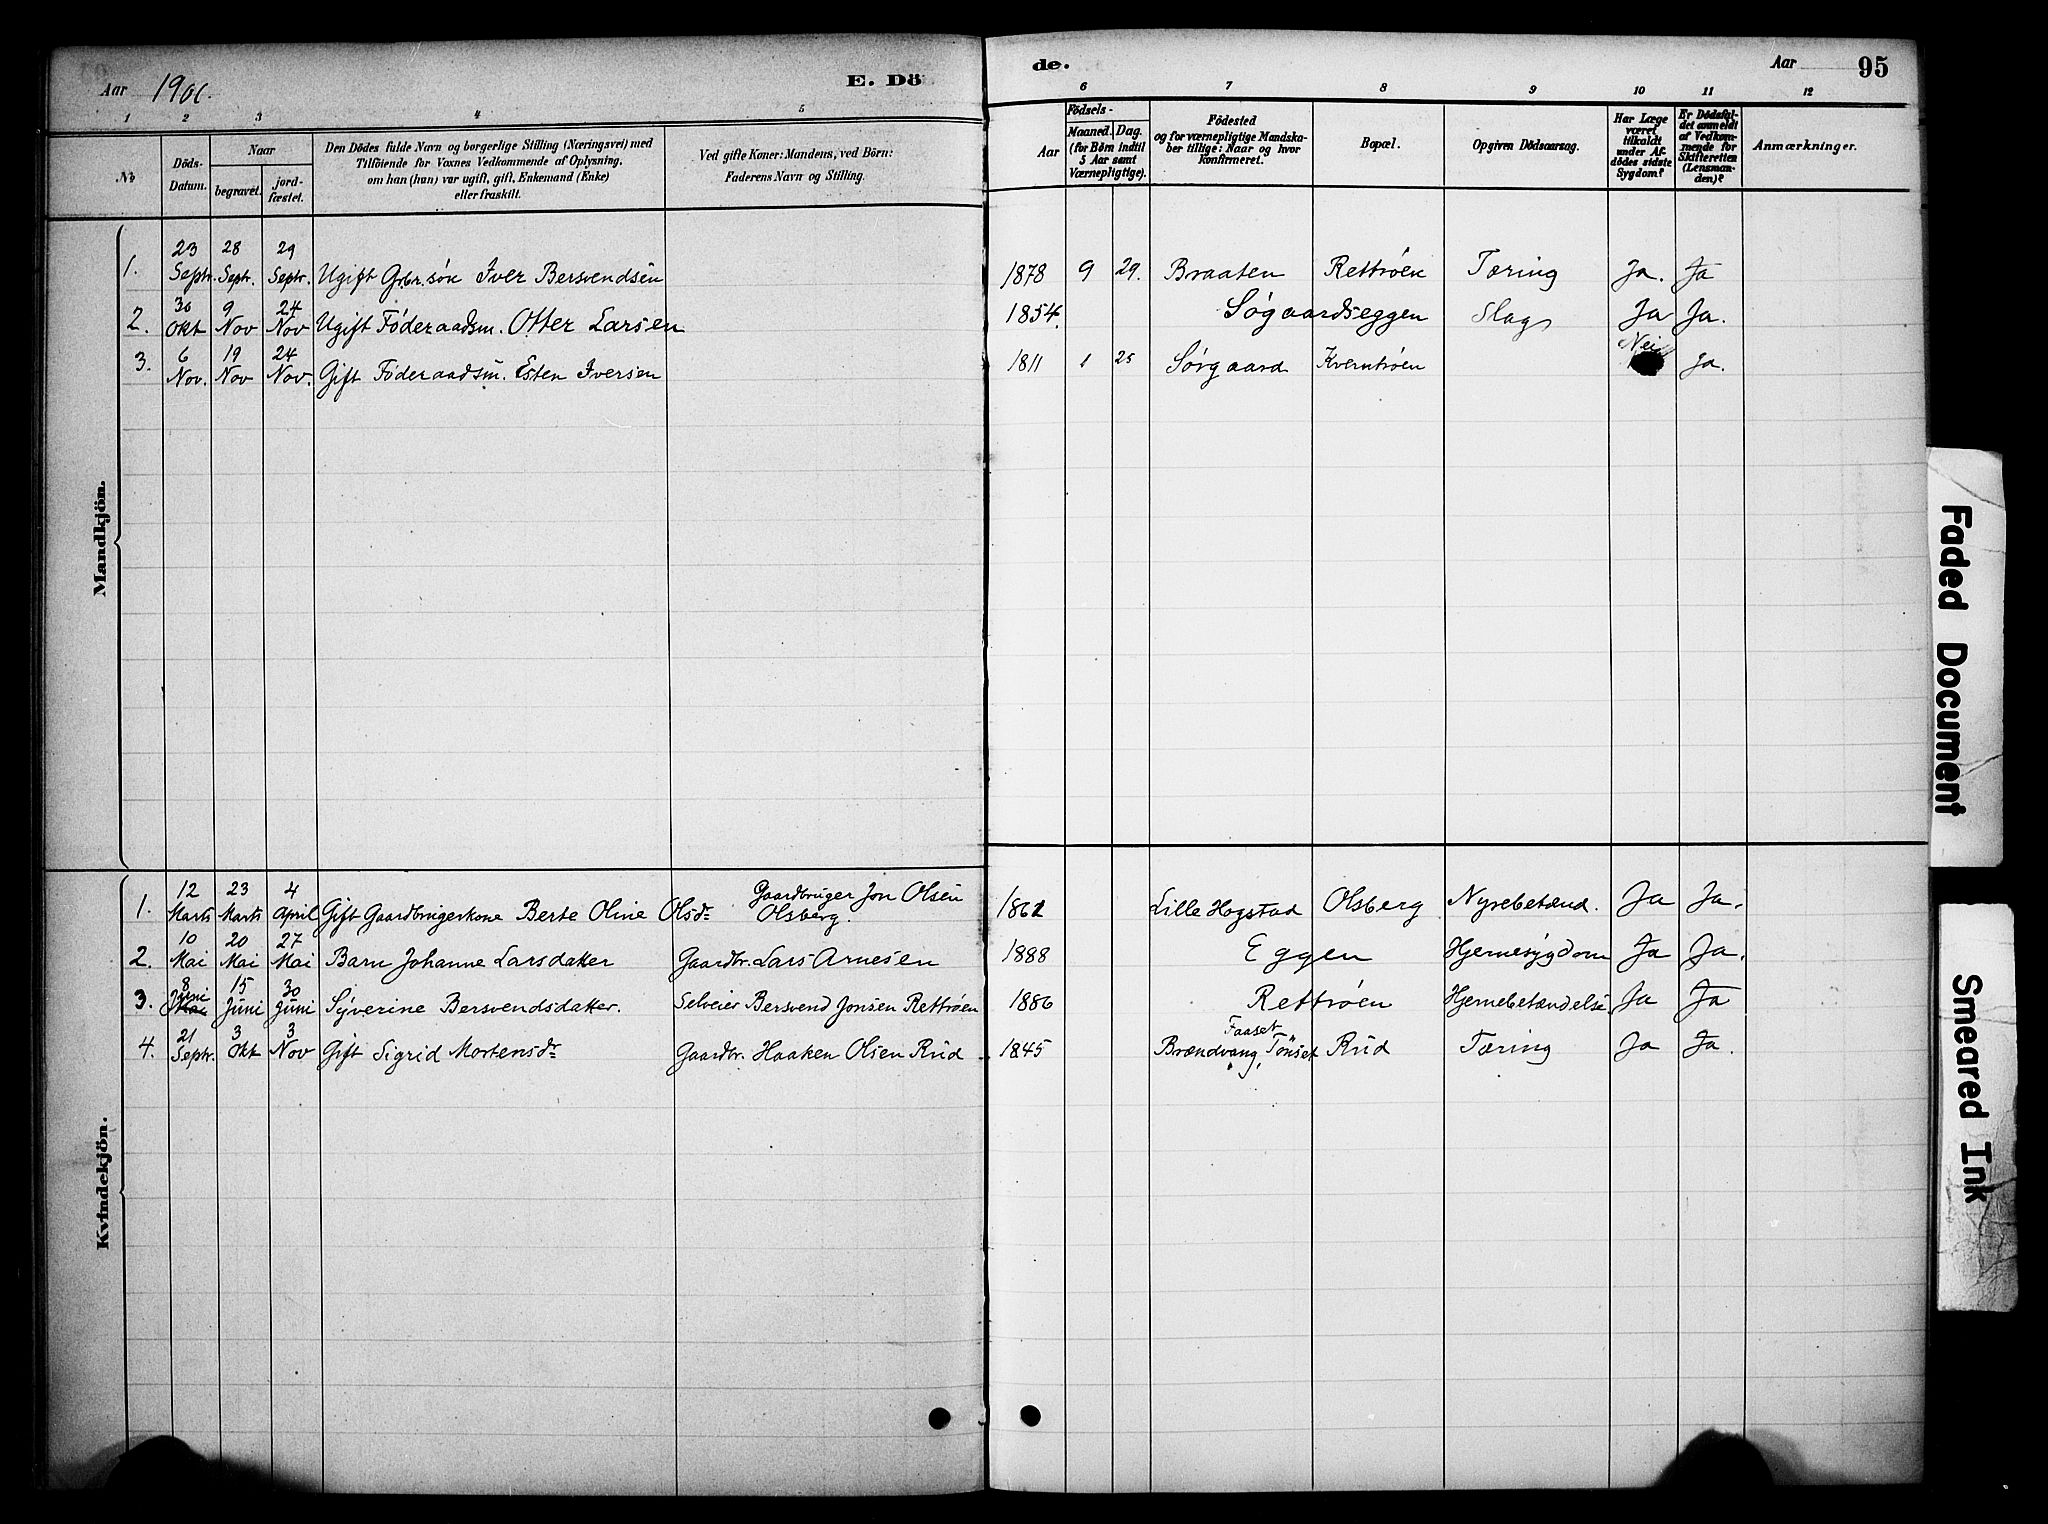 Aar 1900.
E. Dö
de.
Aar
95
1 2 3 4 5
6 7 8 9 10 11 12
No
Döds-Datum.
Naar
begravet.
jord-fæstet.
Den Dödes fulde Navn og borgerlige Stilling (Næringsvei) med
Tilföiende for Voxnes Vedkommende af Oplysning,
om han (hun) var ugift, gift, Enkemand (Enke)
eller fraskilt.
Ved gifte Koner: Mandens, ved Börn:
Faderens Navn og Stilling.
Födsels-
Aar
Maaned. Dag.
(for Börn indtil
5 Aar samt
Værnepligtige).
Födested
og for værnepligtige Mandska-
ber tillige: Naar og hvor
Konfirmeret.
Bopæl.
Opgiven Dödsaarsag.
Har Læge
været
tilkaldt
under Af-
dödes sidste
Sygdom?
Er Dödsfal-
det anmeldt
af Vedkom-
mende for
Skifteretten
(Lensman-
den)?
Anmærkninger.
Mandkjön.
1. 23 Septr. 28 Septr. 29 Septr. Ugift Grbr. søn Iver Bersvendsen 1878 9 29. Braaten Rettrøen Tæring Ja. Ja
2. 30 Okt 9 Nov 24 Nov Ugift Føderaadsm. Otter Larsen 1854. Søgaardseggen Slag Ja Ja.
3. 6 Nov. 19 Nov 24 Nov. Gift Føderaadsm. Esten Iversen 1811 1 25 Sørgaard Kverntrøen Nei Ja.
Kvindekjön.
1. 12 Marts 23 Marts 4 April Gift Gaardbrugerkone Berte Oline Olsdr Gaardbruger Jon Olsen Olsberg. 1862 Lille Hogstad Olsberg Nyrebetænd. Ja Ja.
2. 10 Mai 20 Mai 27 Mai Barn Johanne Larsdatter Gaardbr. Lars Arnesen 1888 Eggen Hjernesygdom Ja Ja.
3. 8 Juni Mai 15 Juni 30 Juni Syverine Bersvendsdatter. Selveier Bersvend Jonsen Rettrøen 1886 Rettrøen Hjernebetændelse Ja Ja
4. 21 Septr. 3 Okt 3 Nov Gift Sigrid Mortensdr Gaardbr. Haaken Olsen Rud 1845 Brændvang, Faaset Tönset Rud Tæring Ja Ja.
Faded Document
Smeared Ink